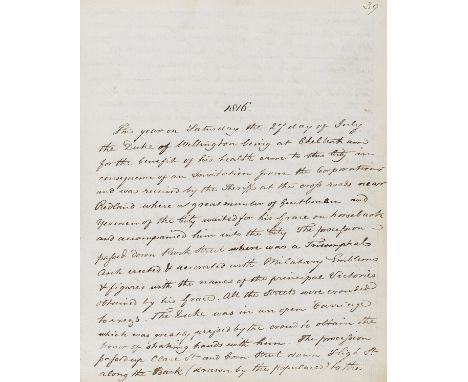 39
1816
This year on Saturday the 27 day of July
the Duke of Wellington being at Cheltenham
for the benefit of his health came to this City in
consequence of an Invitation from the Corporation
and was received by the Sheriffs at the cross roads near
Redland where a great number of Gentlemen and
Yeomen of the City waited for his Grace on horseback
and accompanied him into the City The procession
passed down Park Street where was a Triumphal
Arch erected & decorated with Military Emblems
& figures with the names of the principal Victories
obtained by his Grace. All the Streets were crowded
to excess. The Duke was in an open Carriage
which was greatly pressed by the crowd to obtain the
honor of shaking hands with him. The procession
passed up Clare St and Corn Street down High St
along the Back (drawn by the populace) to the